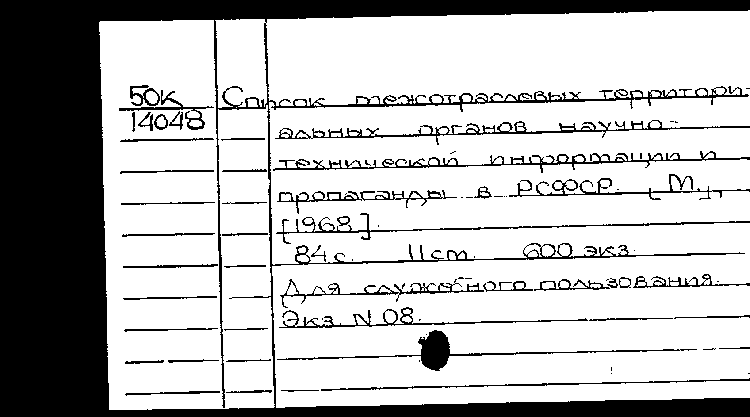 50К Список межотраслевых территори-
14048 альных органов научно-
технической информации и
пропаганды в РСФСР. [М.],
[1968].
84 с. 11 см. 600 экз.
Для служебного пользования.
Экз. N 08.